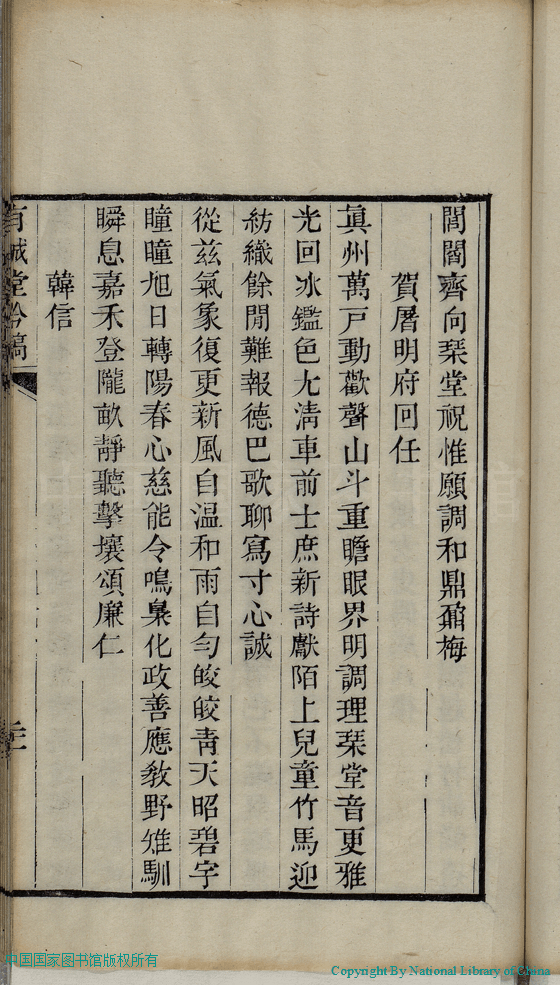 閭閻齊向琹堂祝惟願調和鼎鼐梅
賀厝明府回任
真州萬戸動歡聲山斗重瞻眼界明調理琹堂音更雅
光回冰鑑色尤清車前士庶新詩獻陌上兒童竹馬迎
紡織餘閒難報德巴歌聊寫寸心誠
從兹氣象復更新風自温和雨自勻皎皎青天昭碧宇
曈曈旭日轉陽春心慈能令鳴梟化政善應敎野雉馴
瞬息嘉禾登隴畝靜聽擊壤頌廉仁
韓信
有誠堂吟稿
中国国家图书馆版权所有
Copyright By National Library of China